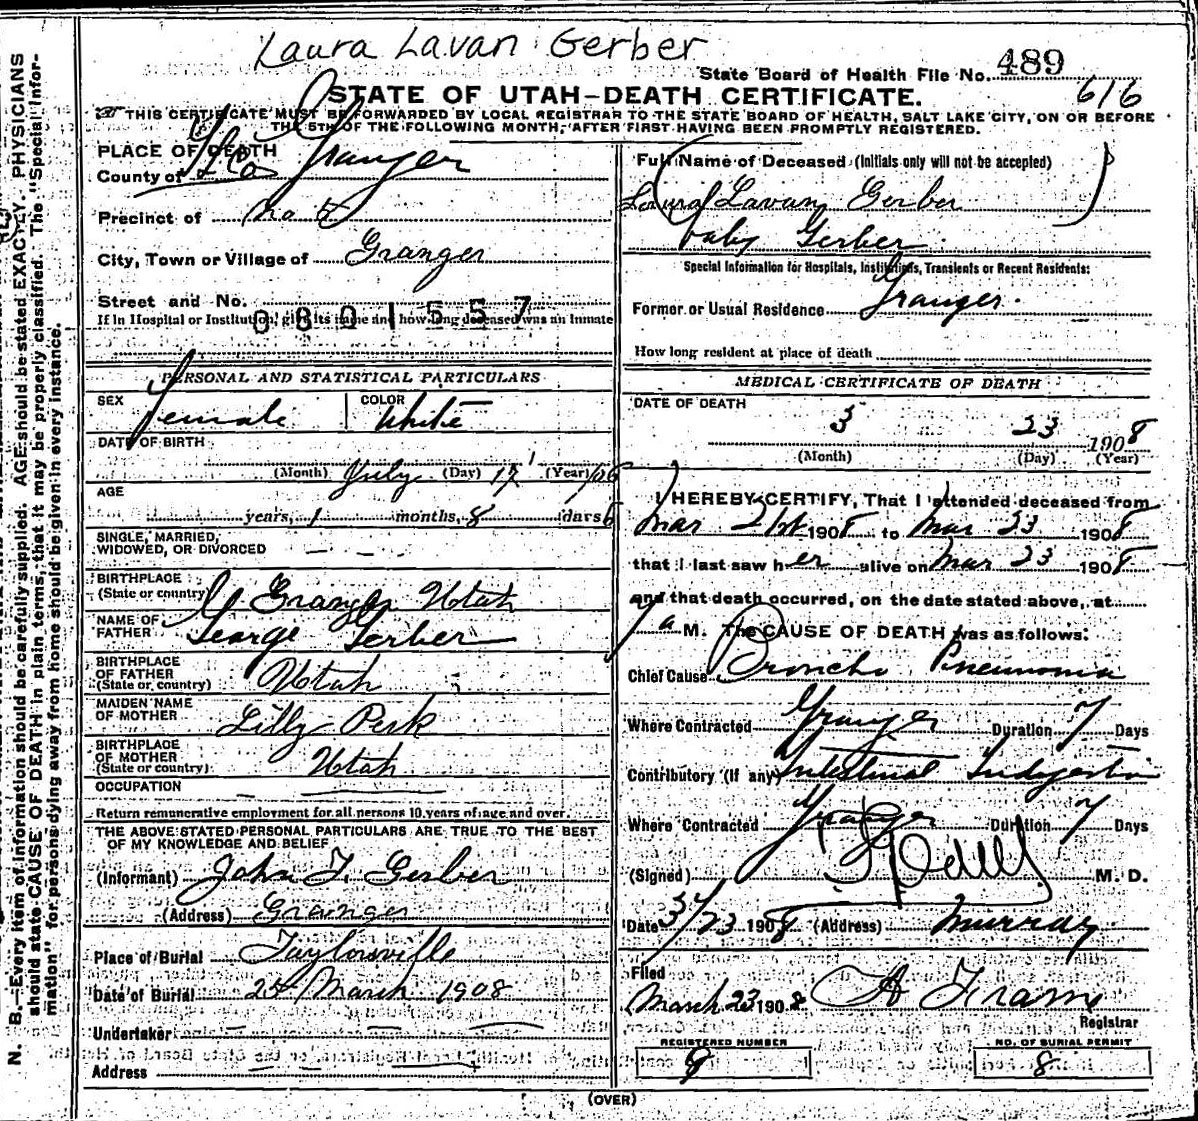 Laura Lavan Gerber
State Board of Health File No. 489
616
STATE OF UTAH—DEATH CERTIFICATE.
THIS CERTIFICATE MUST BE FORWARDED BY LOCAL REGISTRAR TO THE STATE BOARD OF HEALTH, SALT LAKE CITY, ON OR BEFORE
THE 5TH OF THE FOLLOWING MONTH, AFTER FIRST HAVING BEEN PROMPTLY REGISTERED.
PLACE OF DEATH
County of S L Co Granger
Precinct of No
City, Town or Village of Granger
Street and No.
0801557
If in Hospital or Institution, give its name and how long deceased was an inmate
Full Name of Deceased (Initials only will not be accepted)
Laura Lavan Gerber
baby Gerber
Special Information for Hospitals, Institutions, Transients or Recent Residents:
Former or Usual Residence Granger.
How long resident at place of death
PERSONAL AND STATISTICAL PARTICULARS
SEX Female COLOR White
DATE OF BIRTH
(Month) July (Day) 17 (Year) 06
AGE
years, 1 months, 8 days 6
SINGLE, MARRIED,
WIDOWED, OR DIVORCED
BIRTHPLACE
(State or country) Granger Utah
NAME OF
FATHER George Gerber
BIRTHPLACE
OF FATHER
(State or country) Utah
MAIDEN NAME
OF MOTHER Lilly Perk
BIRTHPLACE
OF MOTHER
(State or country) Utah
OCCUPATION
Return remunerative employment for all persons 10 years of age and over.
THE ABOVE STATED PERSONAL PARTICULARS ARE TRUE TO THE BEST
OF MY KNOWLEDGE AND BELIEF
(Informant) John T. Gerber
(Address) Granger
Place of Burial Taylorsville
Date of Burial 25 March 1908
Undertaker
Address
MEDICAL CERTIFICATE OF DEATH
DATE OF DEATH
3 23 1908
(Month) (Day) (Year)
I HEREBY CERTIFY, That I attended deceased from
Mar 21st 1908 to Mar 23 1908
that I last saw her alive on Mar 23 1908
and that death occurred, on the date stated above, at
7 a M. The CAUSE OF DEATH was as follows:
Chief Cause Broncho Pneumonia
Where Contracted Granger Duration 7 Days
Contributory (if any) Intestinal Indigestion
Where Contracted Granger Duration 7 Days
(Signed) M. D.
Date 3/23 1908 (Address) Murray
Filed
March 23 1908 Fram
Registrar
REGISTERED NUMBER
9
NO. OF BURIAL PERMIT
8
(OVER)
N. B.—Every item of information should be carefully supplied. AGE should be stated EXACTLY. PHYSICIANS
should state CAUSE OF DEATH in plain terms, that it may be properly classified. The "Special Infor-
mation" for persons dying away from home should be given in every instance.